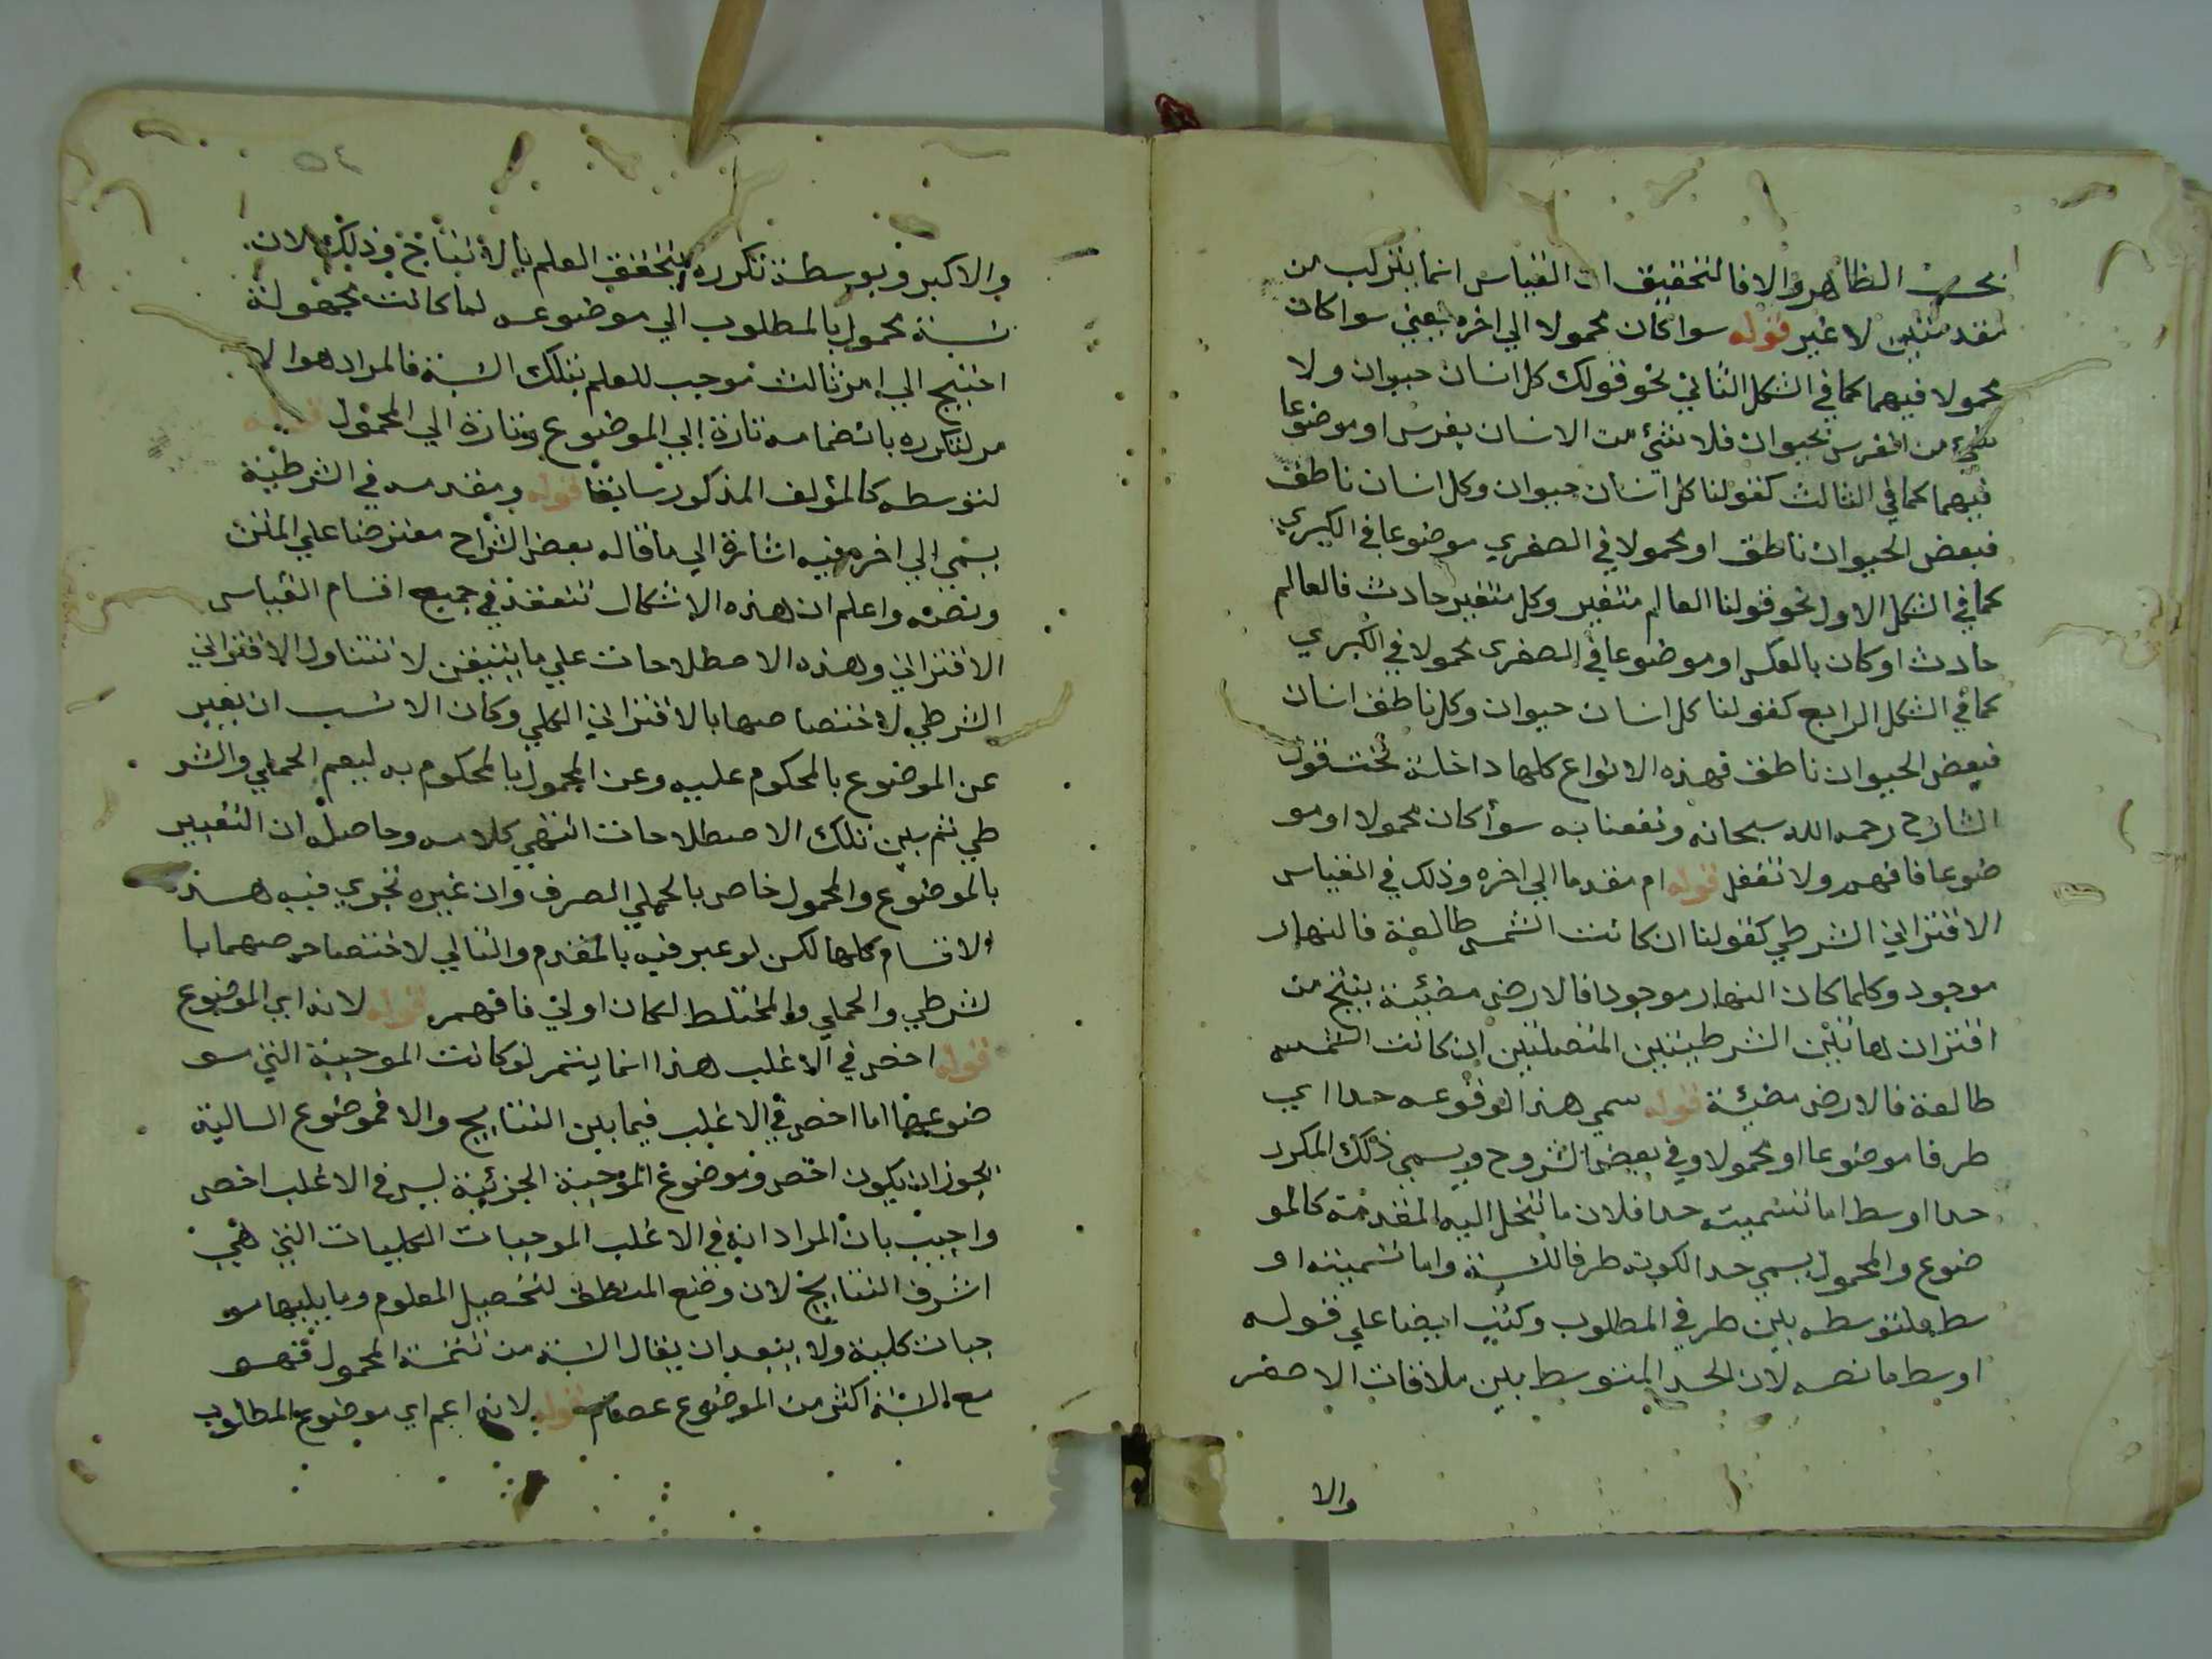 بحسب الظاهر والا فالتحقيق ان القياس انما يتركب من
مقدمتين لا غير قوله سوا كان محمولا الي اخره يعني سوا كان
محمولا فيهما كما في الشكل الثاني نحو قولك كل انسان حيوان ولا
شئ من الفرس بحيوان فلا شئ من الانسان بفرس او موضوعا
فيهما كما في الثالث كقولنا كل انسان حيوان وكل انسان ناطق
فبعض الحيوان ناطق او محمولا في الصغري موضوعا في الكبري
كما في الشكل الاول نحو قولنا العالم متغير وكل متغير حادث فالعالم
حادث او كان بالعكس او موضوعا في الصغرى محمولا في الكبري
كما في الشكل الرابع كقولنا كل انسان حيوان وكل ناطق انسان
فبعض الحيوان ناطق فهذه الانواع كلها داخلة تحت قول
الشارح رحمه الله سبحانه ونفعنا به سوأ كان محمولا او مو
ضوعا فافهم ولا تغفل قوله ام مقدما الي اخره وذلك في القياس
الاقتراني الشرطي كقولنا ان كانت الشمس طالعة فالنهار
موجود وكلما كان النهار موجودا فالارض مضيئة ينتج من
اقتران هاتين الشرطيتين المتصلتين ان كانت الشمس
طالعة فالارض مضيئة قوله سمي هذا لوقوعه حدا اي
طرفا موضوعا او محمولا وفي بعض الشروح ويسمي ذلك المكرر
حدا اوسط اما تسميته حدا فلان ما تنحل اليه المقدمة كالمو
ضوع والمحمول يسمي حدا لكونه طرفا للنسبة واما تسميته او
سط فلتوسطه بين طرفي المطلوب وكتب ايضا علي قوله
اوسط ما نصه لان الحد المتوسط بين ملاقات الاصغر
والا
٥٤
والاكبر وبوسطة تكرره يتحقق العلم بالانتاج وذلك لان
نسبة محمول المطلوب الي موضوعه لما كانت مجهولة
احتيج الي امر ثالث موجب للعلم بتلك النسبة فالمراد هو الا
مر لتكرره بانضمامه تارة الي الموضوع وتارة الي المحمول قوله
لتوسطه كالمؤلف المذكور سابقا قوله ومقدمه في الشرطية
يسمي الي اخره فيه اشارة الي ما قاله بعض الشراح معترضا علي المتن
ونصه واعلم ان هذه الاشكال تنعقد في جميع اقسام القياس
الاقتراني وهذه الاصطلاحات علي ما ينبغي لا تتناول الاقتراني
الشرطي لاختصاصها بالاقتراني الحملي وكان الانسب ان يعبر
عن الموضوع بالمحكوم عليه وعن المحمول بالمحكوم به ليعم الحملي والشر
طي ثم يبين تلك الاصطلاحات انتهي كلامه وحاصله ان التعبير
بالموضوع والمحمول خاص بالحملي الصرف وان غيره تجري فيه هذه
الاقسام كلها لكن لو عبر فيه بالمقدم والتالي لاختصاصهما با
لشرطي والحملي والمختلط لكان اولي فافهم قوله لانه اي الموضوع
قوله اخص في الاغلب هذا انما يتم لو كانت الموجبة التي مو
ضوعها اخص في الاغلب فيما بين النتايج والا فموضوع السالبة
يجوز ان يكون اخص وموضوع الموجبة الجزئية ليس في الاغلب اخص
واجيب بان المراد انه في الاغلب الموجبات الكليات التي هي
اشرف النتايج لان وضع المنطق لتحصيل المعلوم وما يليها مو
جبات كلية ولا يبعد ان يقال النسبة من تتمة المحمول فهو
مع النسبة اكثر من الموضوع عصام قوله لانه اعم اي موضوع المطلوب